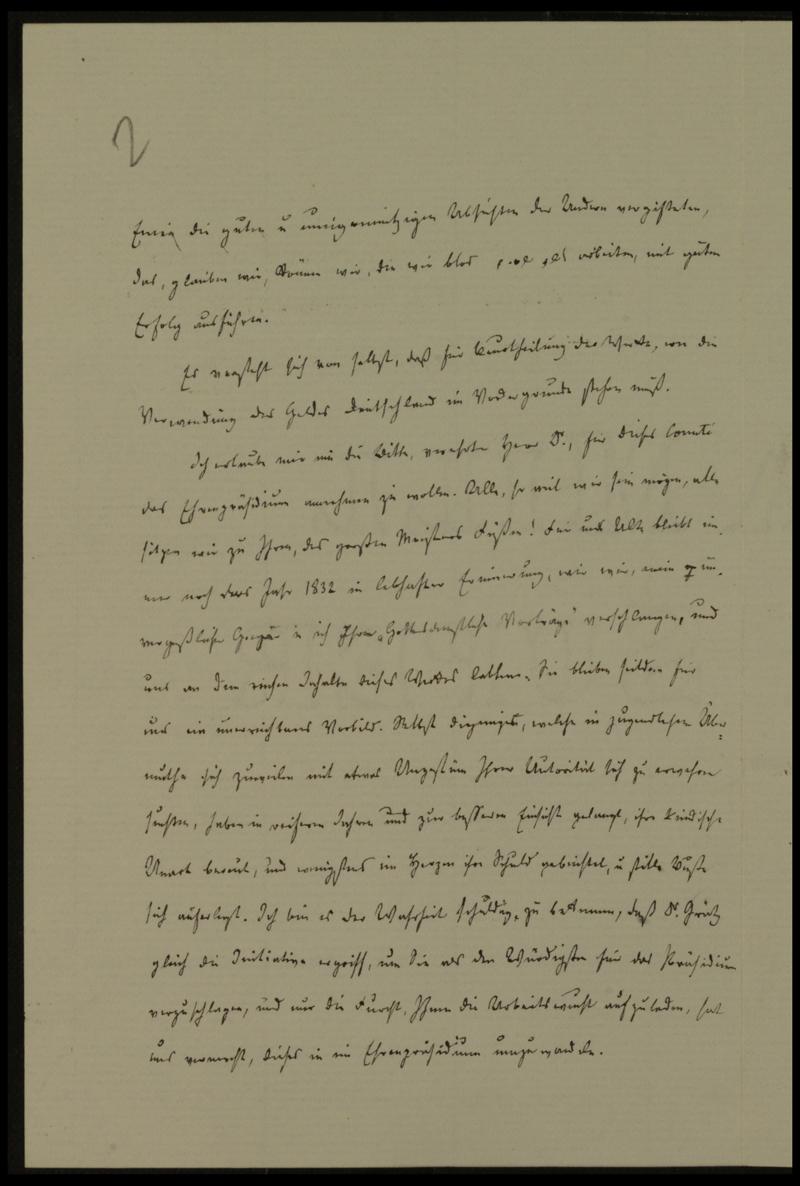 2
die guten u uneigennützigen Absichten der Andern vergifteten,
das, glauben wir, können wir, die wir blos arbeiten, mit guten
Erfolg ausführen.
Es versteht sich von selbst, daß für Beurtheilung der Werke, wie die
Verwendung des Geldes Deutschland im Vordergrunde stehen muß.
Ich erlaube mir nun die Bitte, verehrter Herr Dr., für dieses Comité
das Ehrenpräsidium annehmen zu wollen. Alle, so weit wir sein mögen, alle
sitzen wir zu Ihren, des großen Meisters Füßen! Für uns Alte bleibt im¬
mer noch das Jahr 1832 in lebhafter Erinnerung, wie wir, mein un¬
vergeßlicher u ich Ihre „Gottesdienstliche Vorträge" verschlangen, und
uns an dem reichen Inhalte dieses Werkes labten. Sie blieben seitdem für
uns ein unerreichbares Vorbild. Selbst diejenigen, welche in jugendlichem Über=
muthe sich zuweilen mit etwas Ungestüm Ihrer Autorität sich zu erwehren
suchten, haben in reiferen Jahren und zur besseren Einsicht gelangt, ihre kindische
Unart bereut, und wenigstens im Herzen ihre Schuld gebeichtet, u stille Buße
sich auferlegt. Ich bin es der Wahrheit schuldig, zu bekennen, daß Dr. Grätz
gleich die Initiative ergriff, um Sie als den Würdigsten für das Präsidium
vorzuschlagen, und nur die Furcht, Ihnen die Arbeitswucht aufzuladen, hat
uns vermocht, dieses in ein Ehrenpräsidium umzuwandeln.